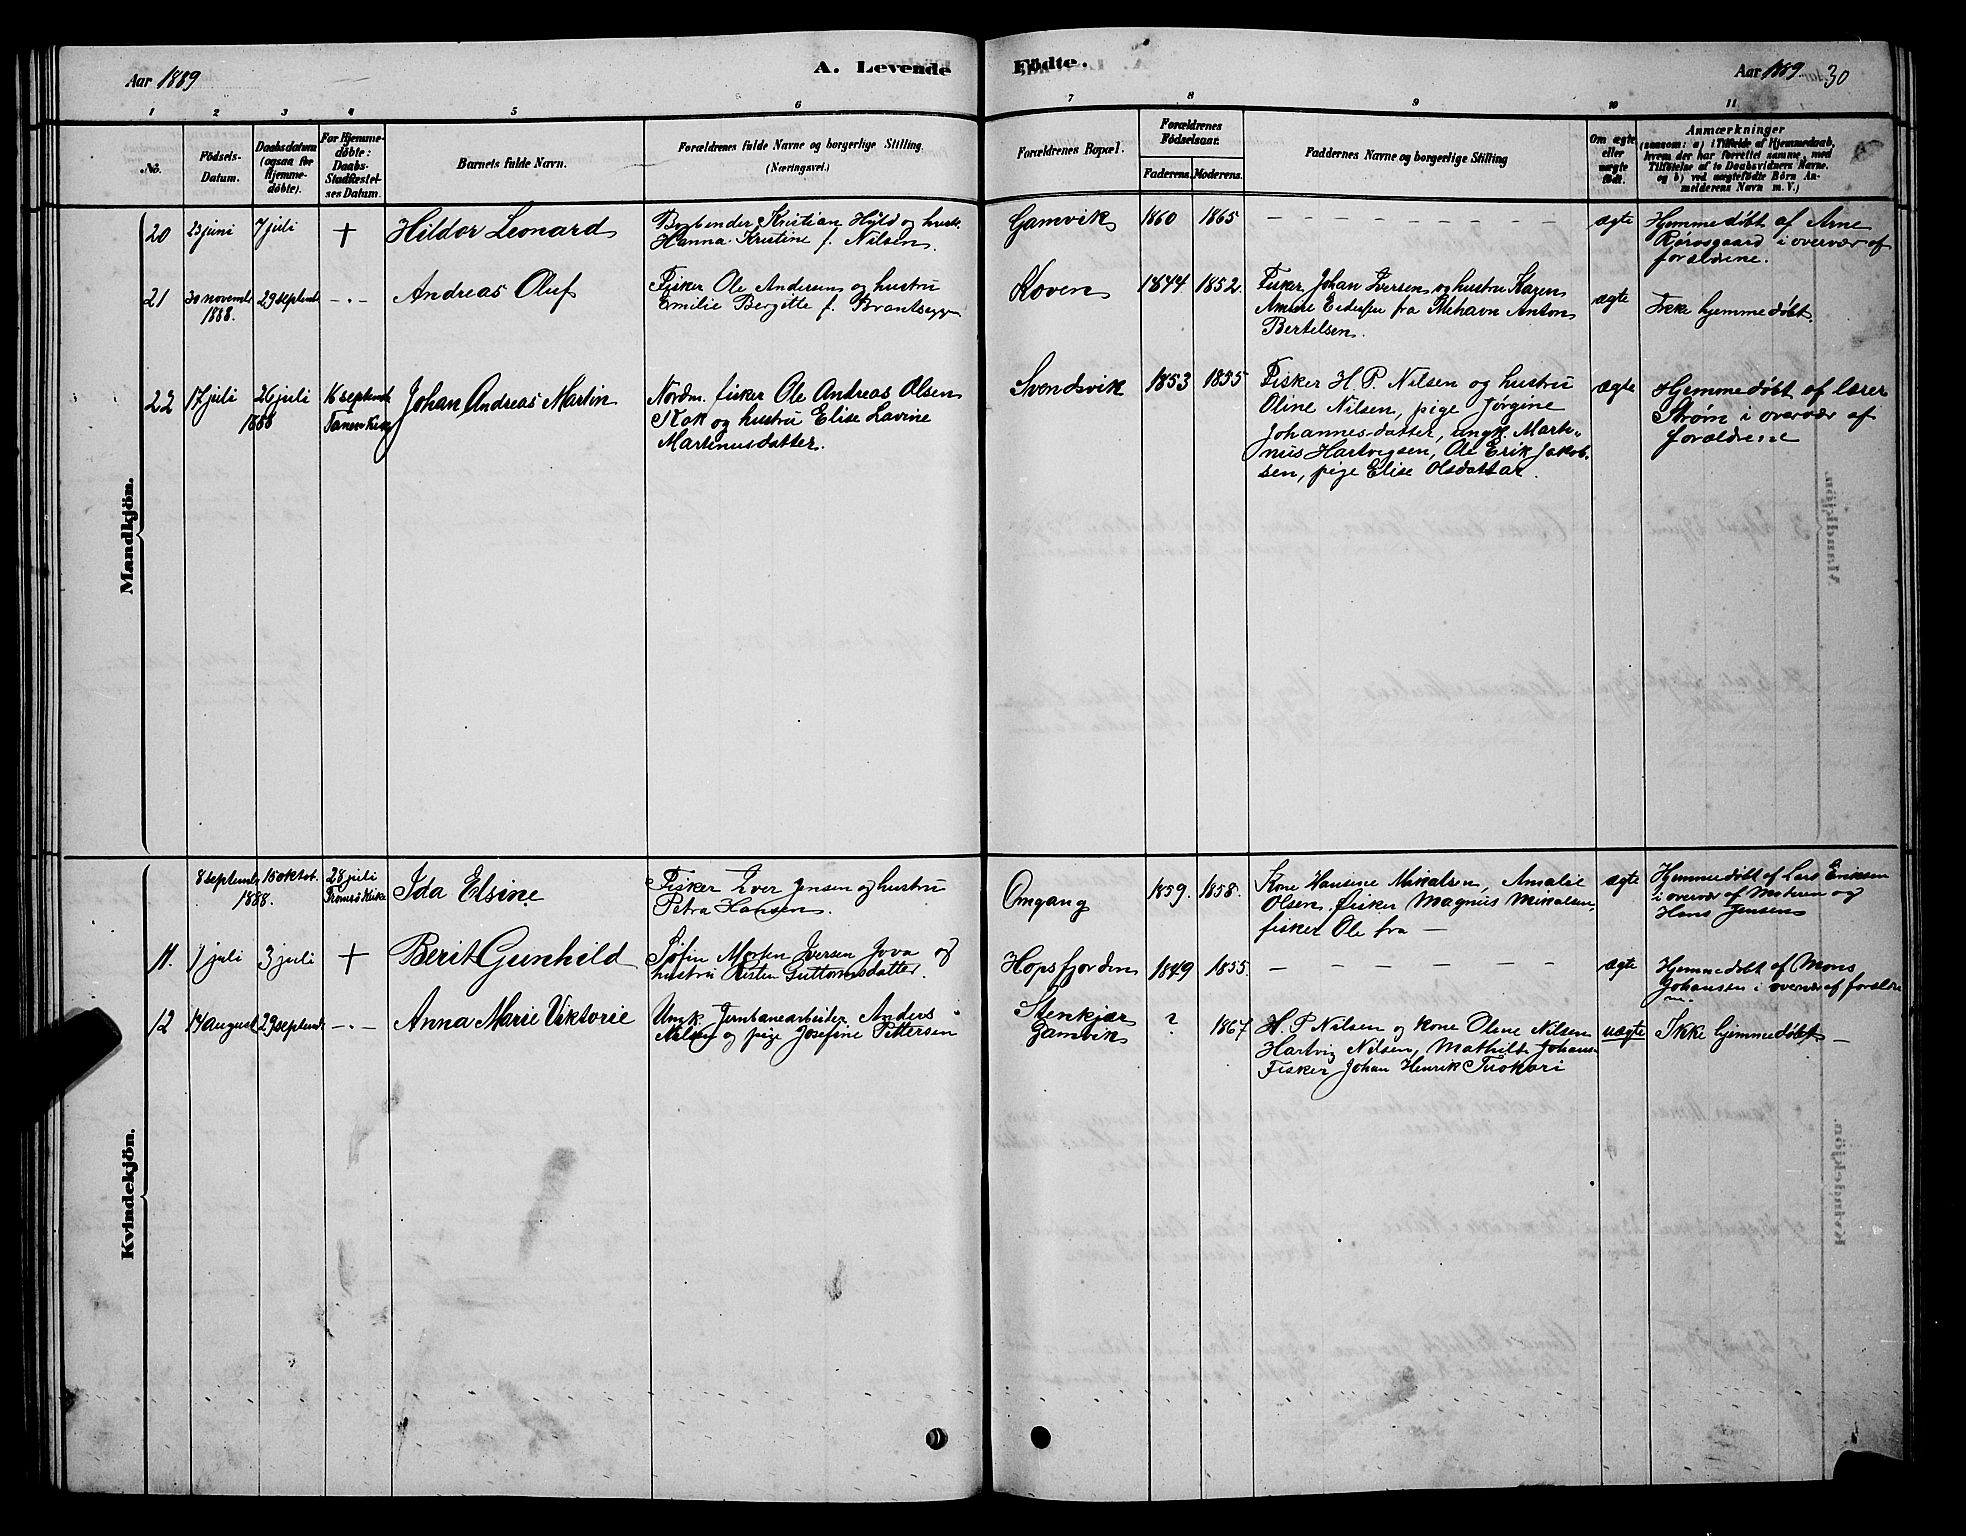 Aar 1889
A. Levende
Fødte.
Aar 1889
30
1 2 3 4 5 6 7 8 9 10 11
No.
Fødsels-
Datum.
Daabsdatum
(ogsaa for
Hjemme-
døbte).
For Hjemme-
døbte:
Daabs-
Stadfæstel-
ses Datum.
Barnets fulde Navn.
Forældrenes fulde Navne og borgerlige Stilling
(Næringsvei.)
Forældrenes Bopæl.
Forældrenes
Fødselsaar.
Faderens. Moderens.
Faddernes Navne og borgerlige Stilling
Om ægte
eller
uægte
født.
Anmærkninger
(saasom: a) i Tilfælde af Hjemmedaab,
hvem der har forrettet samme, med
Tilføielse af to Daabsvidners Navne.
og b) ved uægtefødte Børn An-
melderens Navn m. V.)
Mandkjön.
20 23 juni 7 juli + Hildor Leonard
Kristian Hyld og hustr.
Hanna Kristine f. Nilsen.
Gamvik 1860 1865 — — — — — — — — ægte
Hjemmedøbt af Arne
Rørosgaard i overvær af
forældrene.
21 30 novembr 1888. 29 septemb — . — Andreas Oluf
Fisker Ole Andersen og hustru
Emilie Bergitte f.
Koven 1844 1852.
Fisker Johan Iversen og hustru Karen
fra Mehavn Anton
Bertelsen.
ægte Ikke hjemmedøbt.
22 17 juli 26 juli 1888 16 septemb Tanen Kirke Johan Andreas Martin
Nordm. fisker Ole Andreas Olsen
Kok og hustru Elise Lavine
Martinusdatter.
Svendsvik 1853 1855
Fisker H. P. Nilsen og hustru
Oline Nilsen, pige Jørgine
Johannesdatter, ungk. Marti-
nus Hartvigsen, Ole Erik Jakob-
sen, pige Elise Olsdatter.
ægte
Hjemmedøbt af lærer
Strøm i overvær af
forældrene
Kvindekjön.
8 septemb 1888. 15 oktob. 28 juli Tromsö Kirke Ida Elsine
Fisker Iver Jensen og hustru
Petra Hansen.
Omgang 1859. 1858.
Kone Hansine Mikalsen, Amalie
Olsen, fisker Magnus Mikalsen,
fisker Ole fra —
ægte
Hjemmedøbt af Lars Eriksen
i overvær af Moderen og
Hans Jensen
11. 1 juli 3 juli + Berit Gunhild
Søfin Morten Iversen Jova og
hustru Kirsten Guttormsdatter.
Hopsfjorden 1849 1855. — — — — — — ægte
Hjemmedøbt af Mons
Johansen i overvær af foræld
ne.
12 14 august 29 septemb — . — Anna Marie Viktorie
Umk Jernbanearbeider Anders
Nilsen og pige Josefine Pettersen
Stenkjær
Gamvik
? 1867
H. P Nilsen og kone Oline Nilsen
Hartvig Nilsen, Mathilde Johans
Fisker Johan Henrik Tuokari
uægte Ikke hjemmedøbt —
Mandkjön.
Kvindekjön.